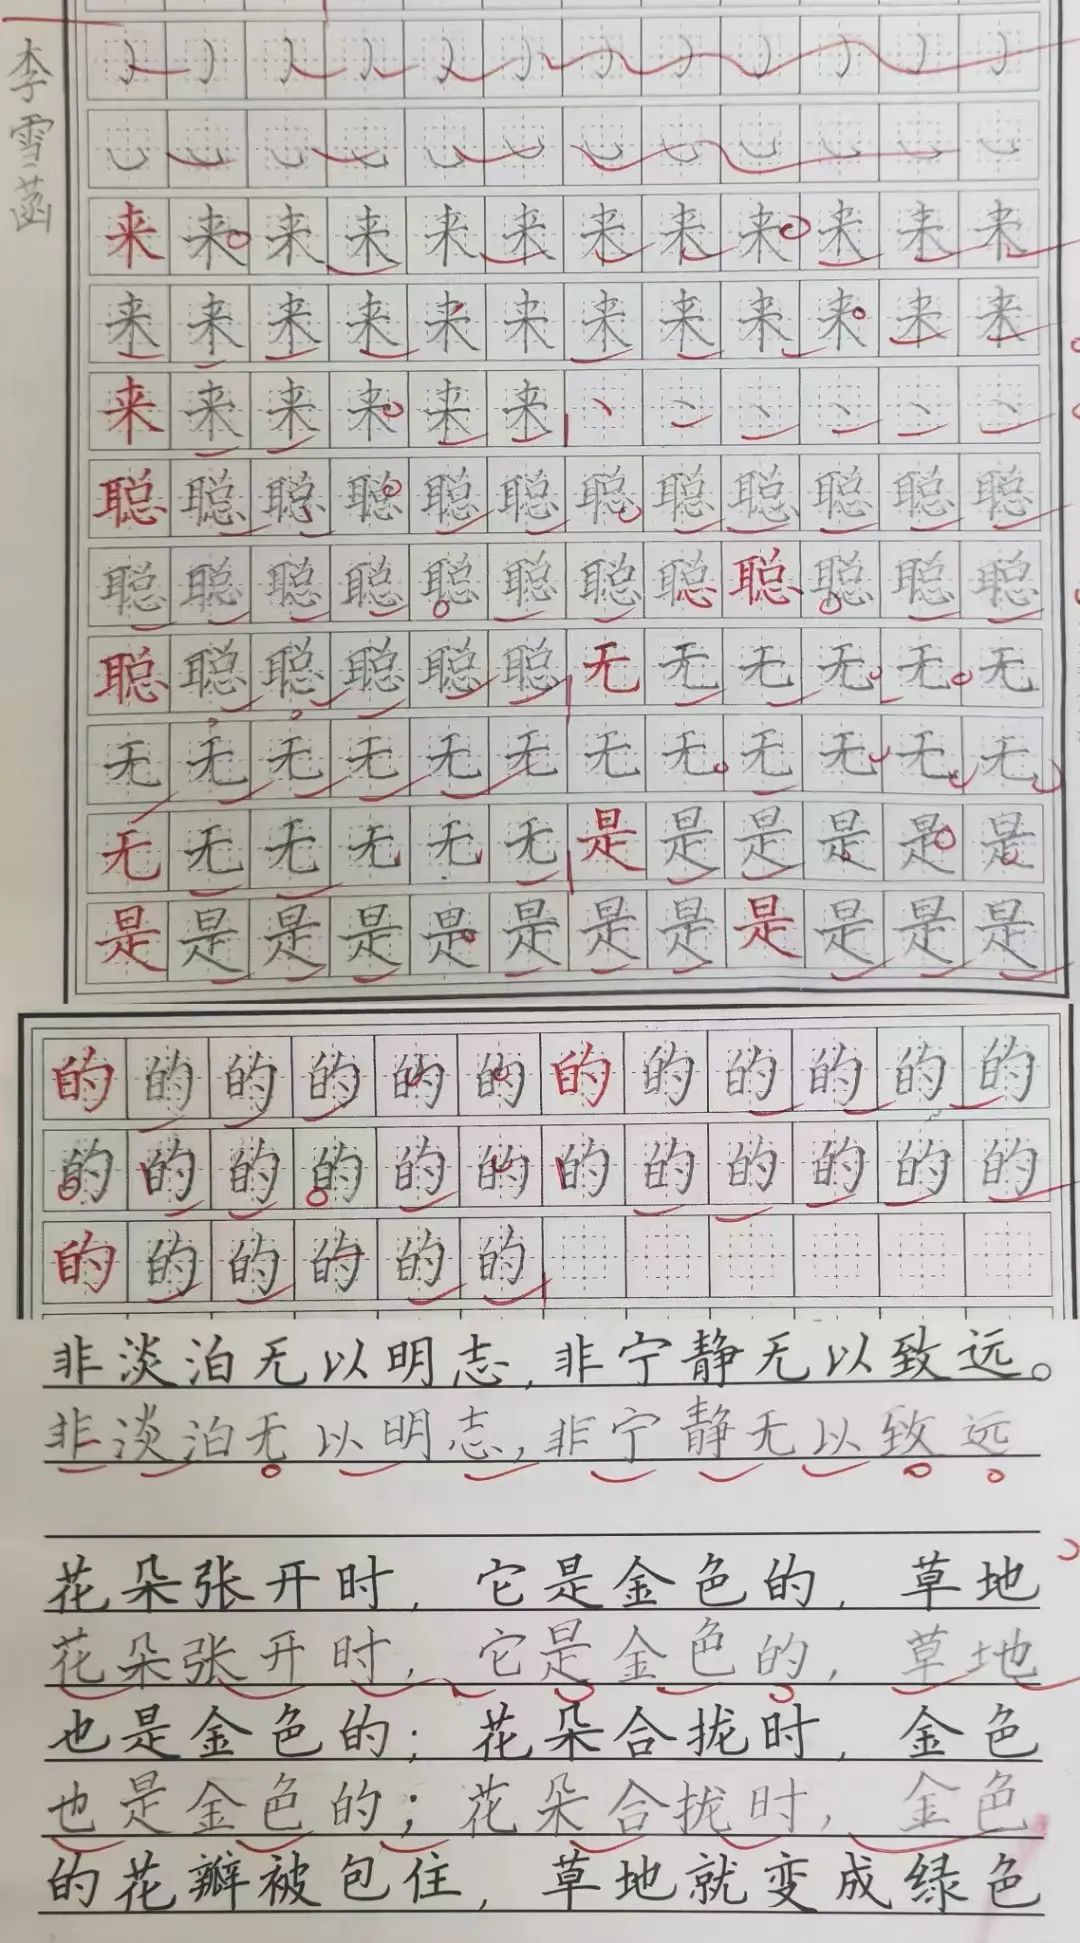 李雪菡
来来来来来来来来来来来来
来来来来来来来来来来来来
来来来来来来丶丶丶丶丶丶
聪聪聪聪聪聪聪聪聪聪聪聪
聪聪聪聪聪聪聪聪聪聪聪聪
聪聪聪聪聪聪无无无无无无
无无无无无无无无无无无无
无无无无无无是是是是是是
是是是是是是是是是是是是
的的的的的的的的的的的的
的的的的的的的的的的的的
的的的的的的
非淡泊无以明志,非宁静无以致远。
非淡泊无以明志,非宁静无以致远
花朵张开时,它是金色的,草地
花朵张开时,它是金色的,草地
也是金色的;花朵合拢时,金色
也是金色的;花朵合拢时,金色
的花瓣被包住,草地就变成绿色